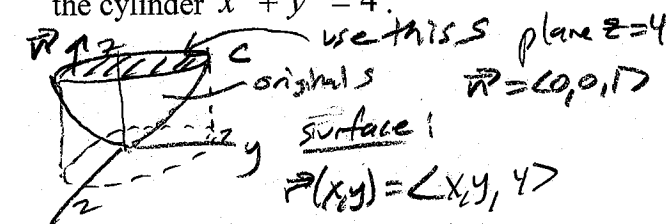 the cylinder x² + y² = 4.
n z use this S plane z=4
C n = <0,0,1>
original S
2 y surface:
2 r(x,y) = <x,y,4>